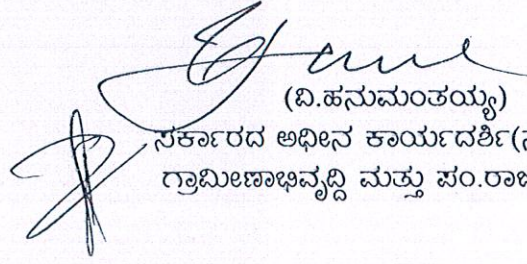 (ವಿ.ಹನುಮಂತಯ್ಯ)
ಸರ್ಕಾರದ ಅಧೀನ ಕಾರ್ಯದರ್ಶಿ(ಸ
ಗ್ರಾಮೀಣಾಭಿವೃದ್ಧಿ ಮತ್ತು ಪಂ.ರಾಜ